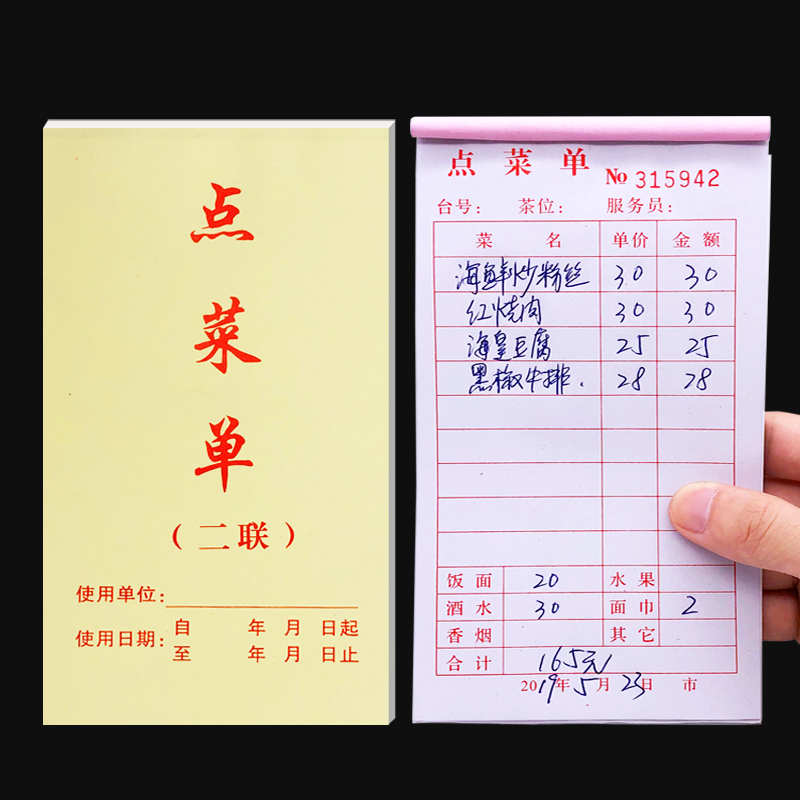 点菜单
（二联）
使用单位：
使用日期：自 年 月 日起
至 年 月 日止
点菜单 № 315942
台号： 茶位： 服务员：
菜 名 单价 金额
海鲜炒粉丝 30 30
红烧肉 30 30
海皇豆腐 25 25
黑椒牛排. 28 28
饭面 20 水果
酒水 30 面巾 2
香烟 其它
合计 165元
2019年5月23日 市